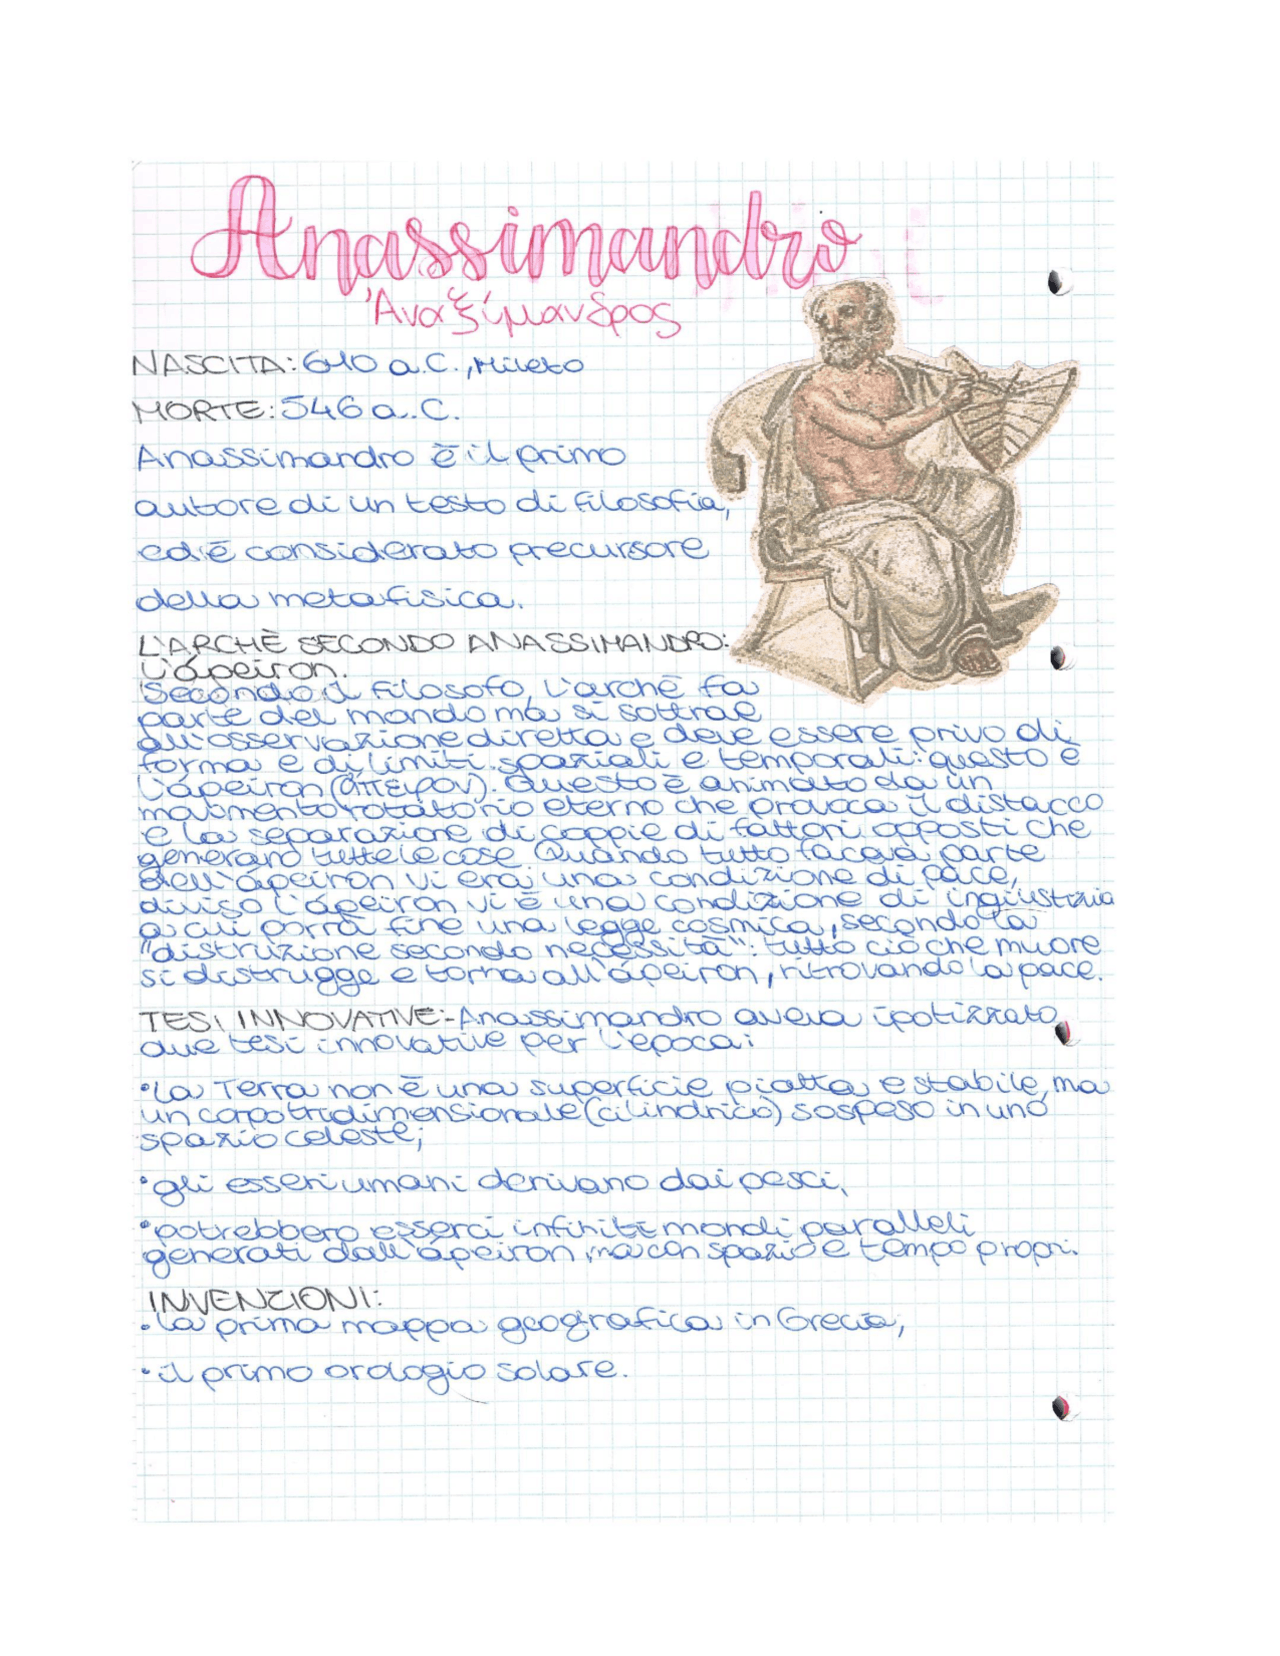 Anassimandro
Ἀναξίμανδρος
NASCITA: 610 a.C., Mileto
MORTE: 546 a.C.
Anassimandro è il primo
autore di un testo di filosofia,
ed è considerato precursore
della metafisica.
L'ARCHÈ SECONDO ANASSIMANDRO:
L'ápeiron.
Secondo il filosofo, l'archè fa
parte del mondo ma si sottrae
all'osservazione diretta e deve essere privo di
forma e di limiti spaziali e temporali: questo è
l'ápeiron (ἄπειρον). Questo è animato da un
movimento rotatorio eterno che provoca il distacco
e la separazione di coppie di fattori opposti che
generano tutte le cose. Quando tutto faceva parte
dell'ápeiron vi era una condizione di pace,
diviso l'ápeiron vi è una condizione di ingiustizia
a cui porrà fine una legge cosmica, secondo la
"distruzione secondo necessità": tutto ciò che muore
si distrugge e torna all'ápeiron, ritrovando la pace.
TESI INNOVATIVE:-Anassimandro aveva ipotizzato
due tesi innovative per l'epoca:
•La Terra non è una superficie piatta e stabile, ma
un corpo tridimensionale (cilindrico) sospeso in uno
spazio celeste;
•gli esseri umani derivano dai pesci;
•potrebbero esserci infiniti mondi paralleli
generati dall'ápeiron, ma con spazio e tempo propri.
INVENZIONI:
•La prima mappa geografica in Grecia;
•il primo orologio solare.